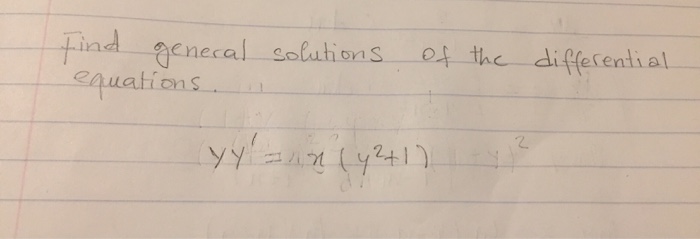 Find general solutions of the differential
equations.
yy' = x(y²+1)